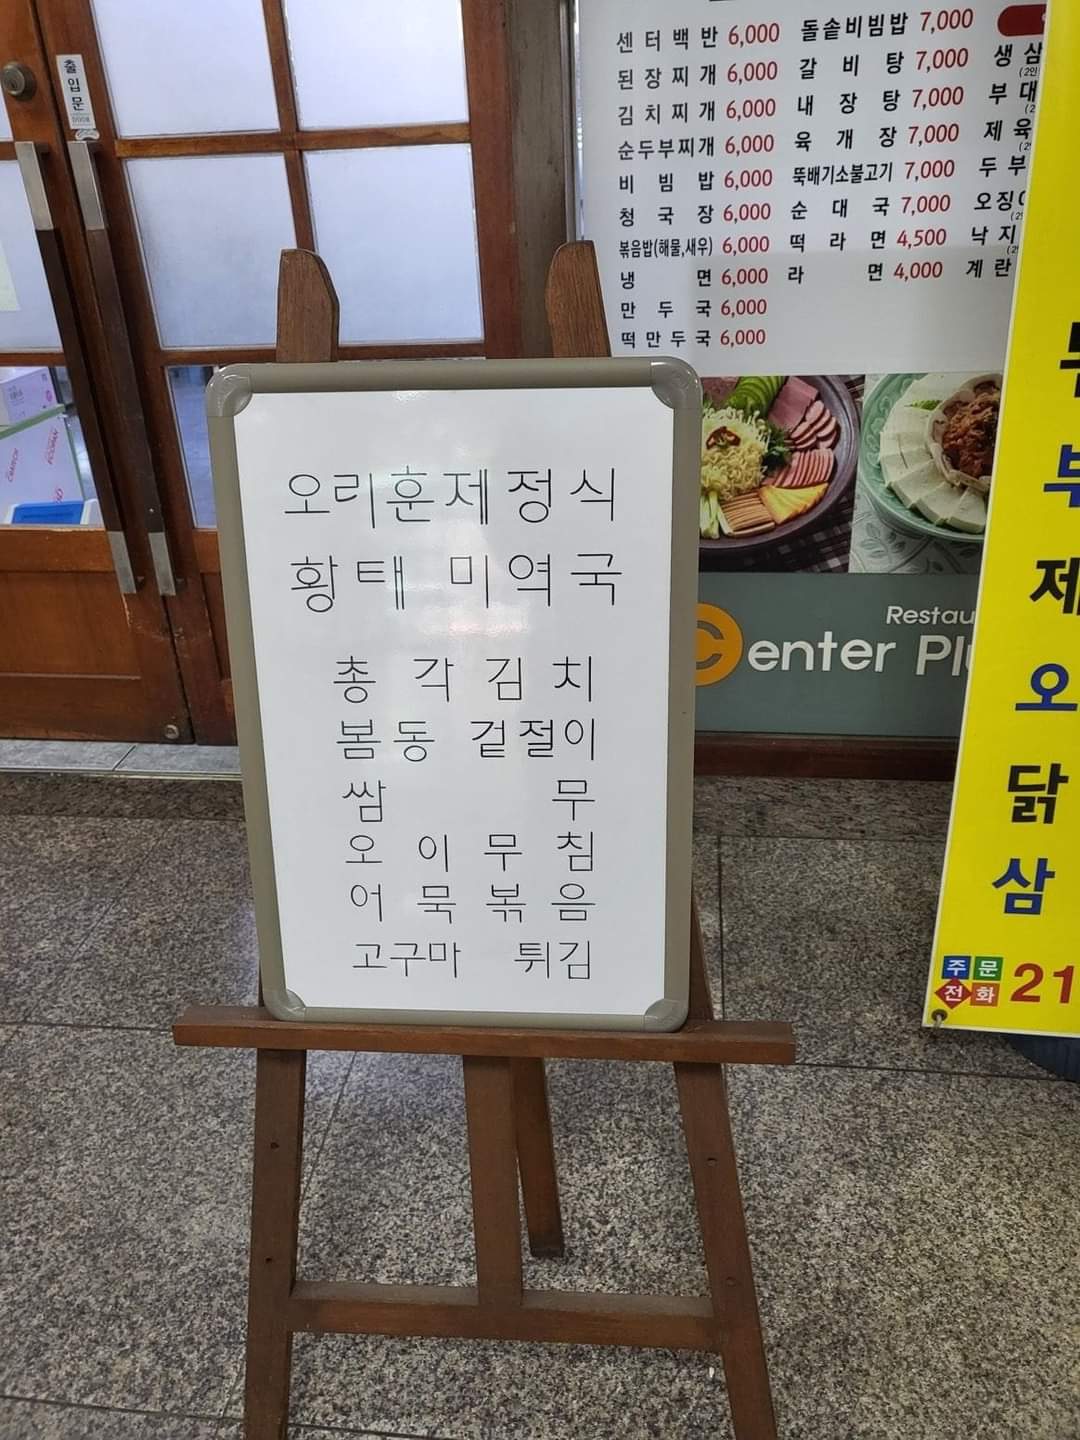 출입문
DOOR
센터백반 6,000
된장찌개 6,000
김치찌개 6,000
순두부찌개 6,000
비빔밥 6,000
청국장 6,000
볶음밥(해물,새우) 6,000
냉면 6,000
만두국 6,000
떡만두국 6,000
돌솥비빔밥 7,000
갈비탕 7,000
내장탕 7,000
육개장 7,000
뚝배기소불고기 7,000
순대국 7,000
떡라면 4,500
라면 4,000
생삼
부대
제육
두부
오징
낙지
계란
오리훈제정식
황태 미역국
총각김치
봄동 겉절이
쌈무
오이무침
어묵볶음
고구마 튀김
Restau
Center Pl
부
제
오
닭
삼
주문
전화
21